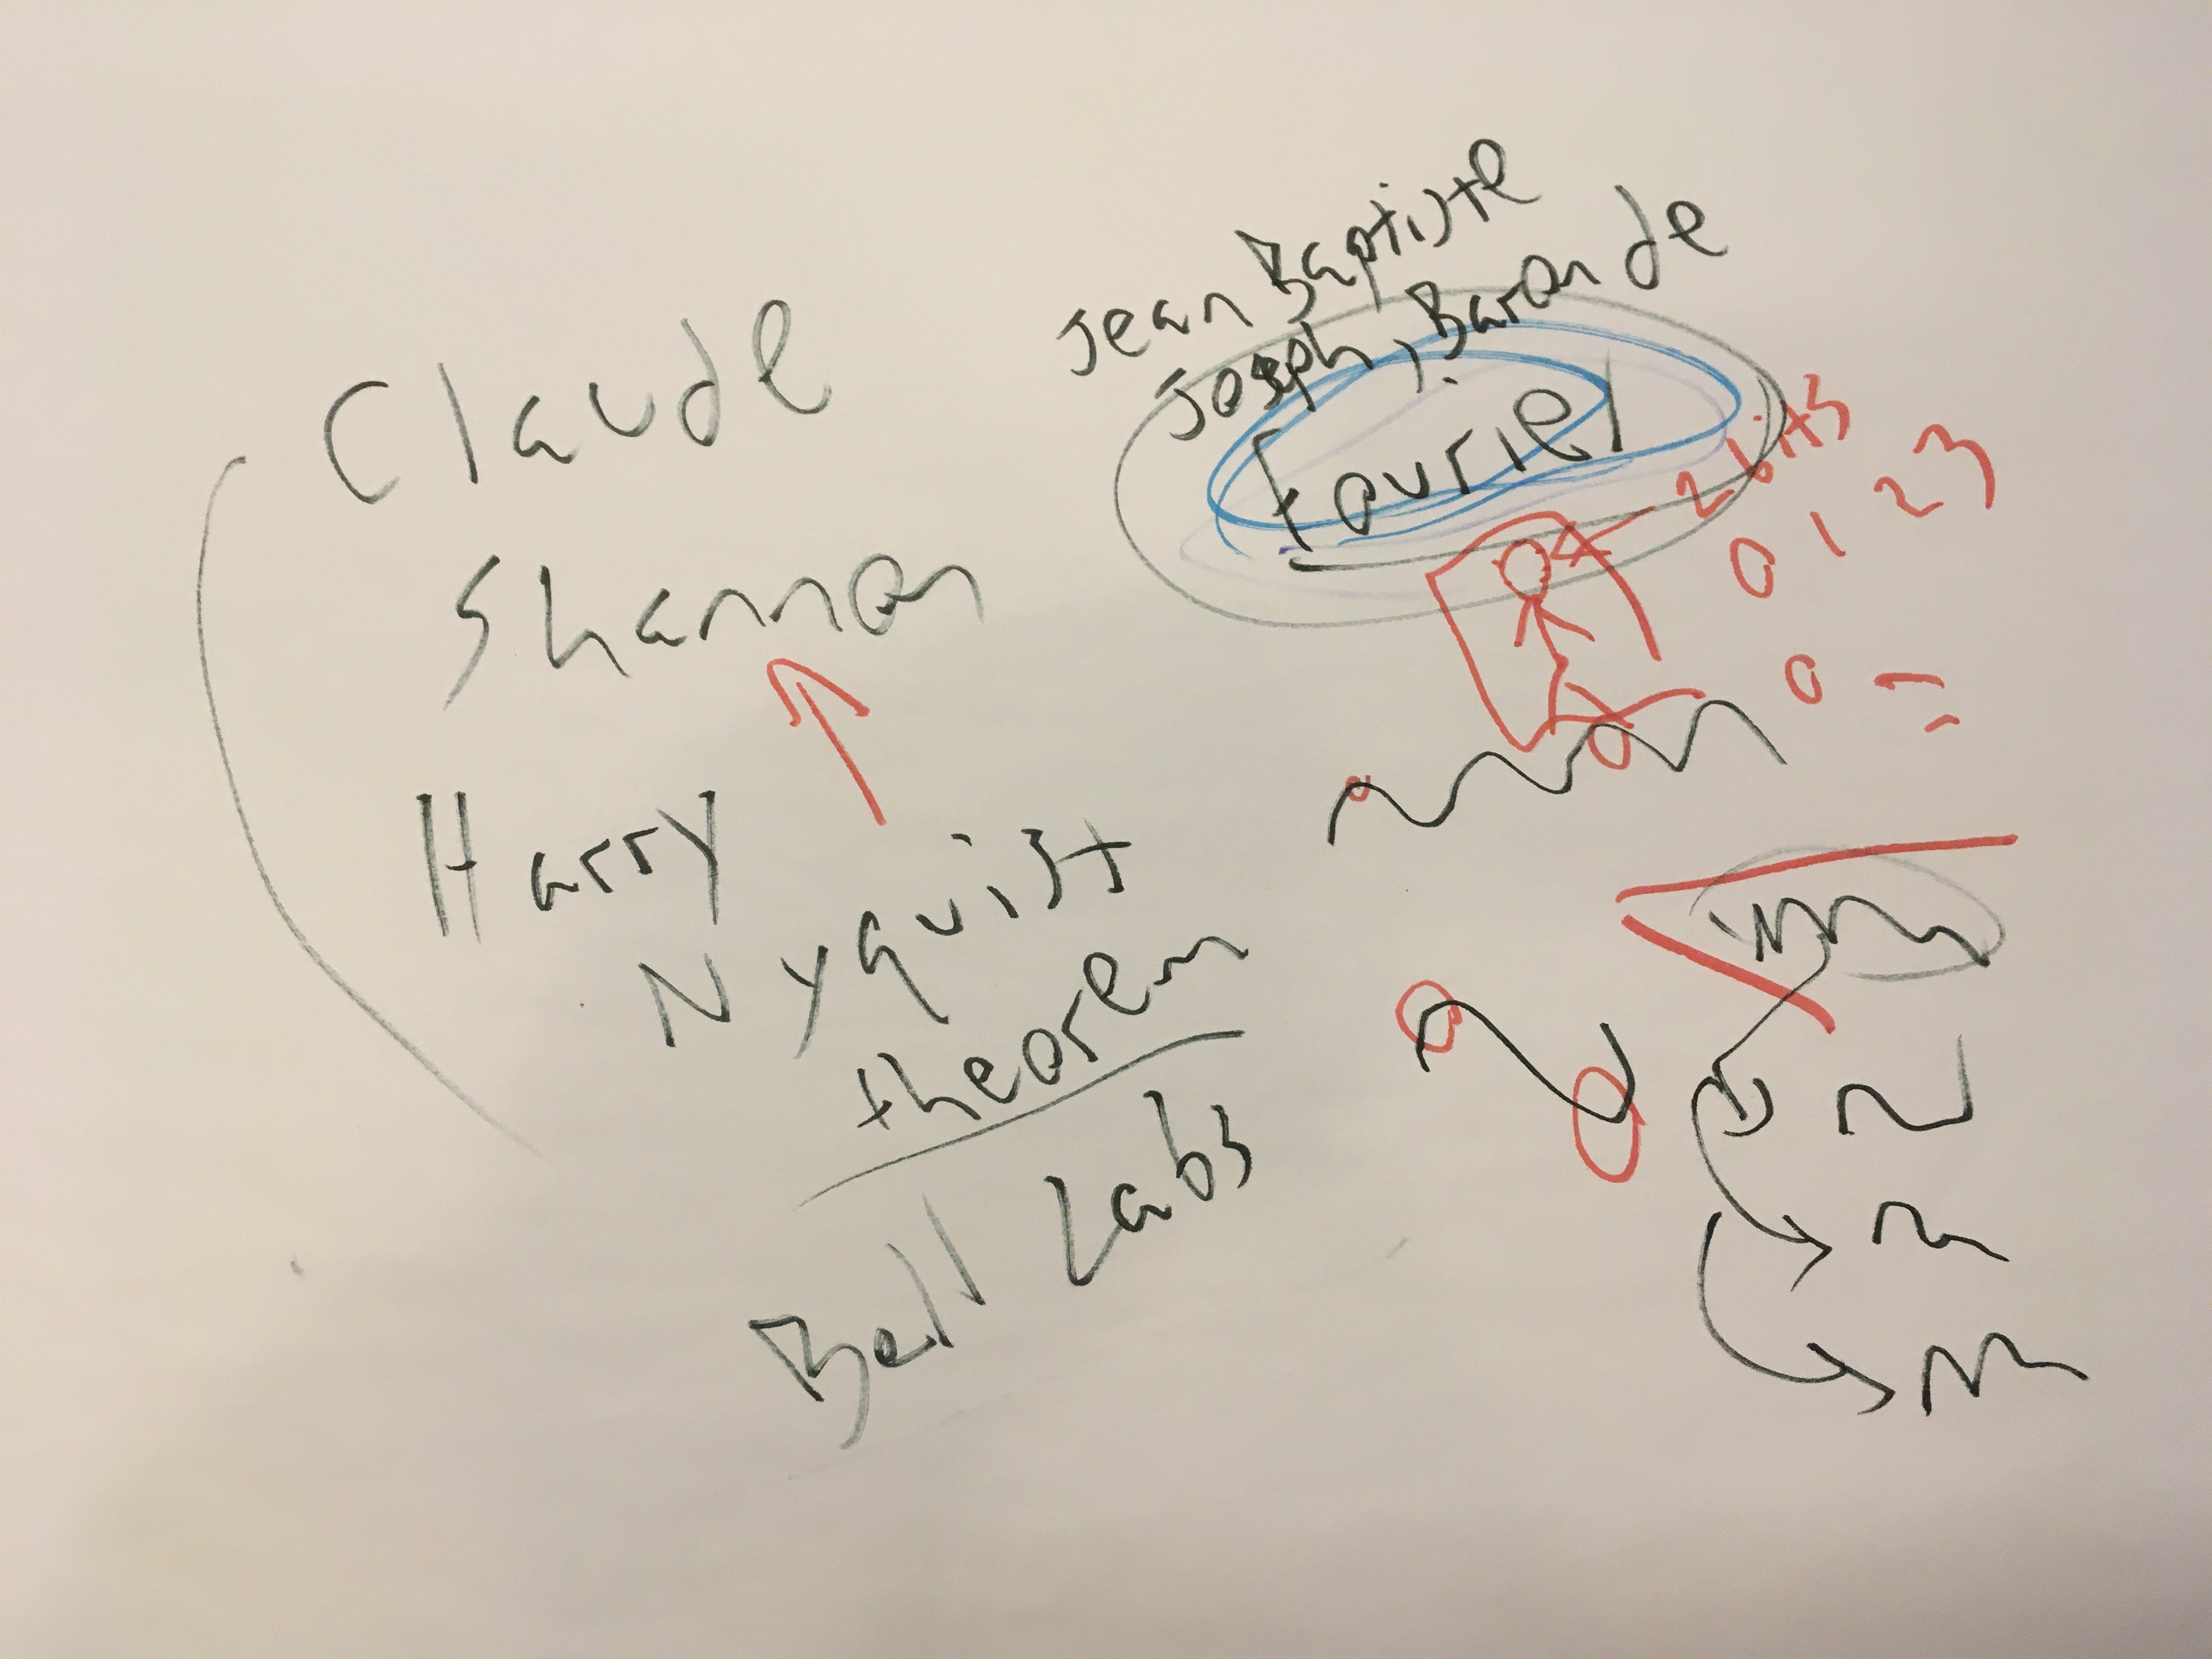 Claude
Shannon
Harry
Nyquist
theorem
Bell Labs
Jean Baptiste
Joseph, Baron de
Fourier
2 bits
0 1 2 3
0